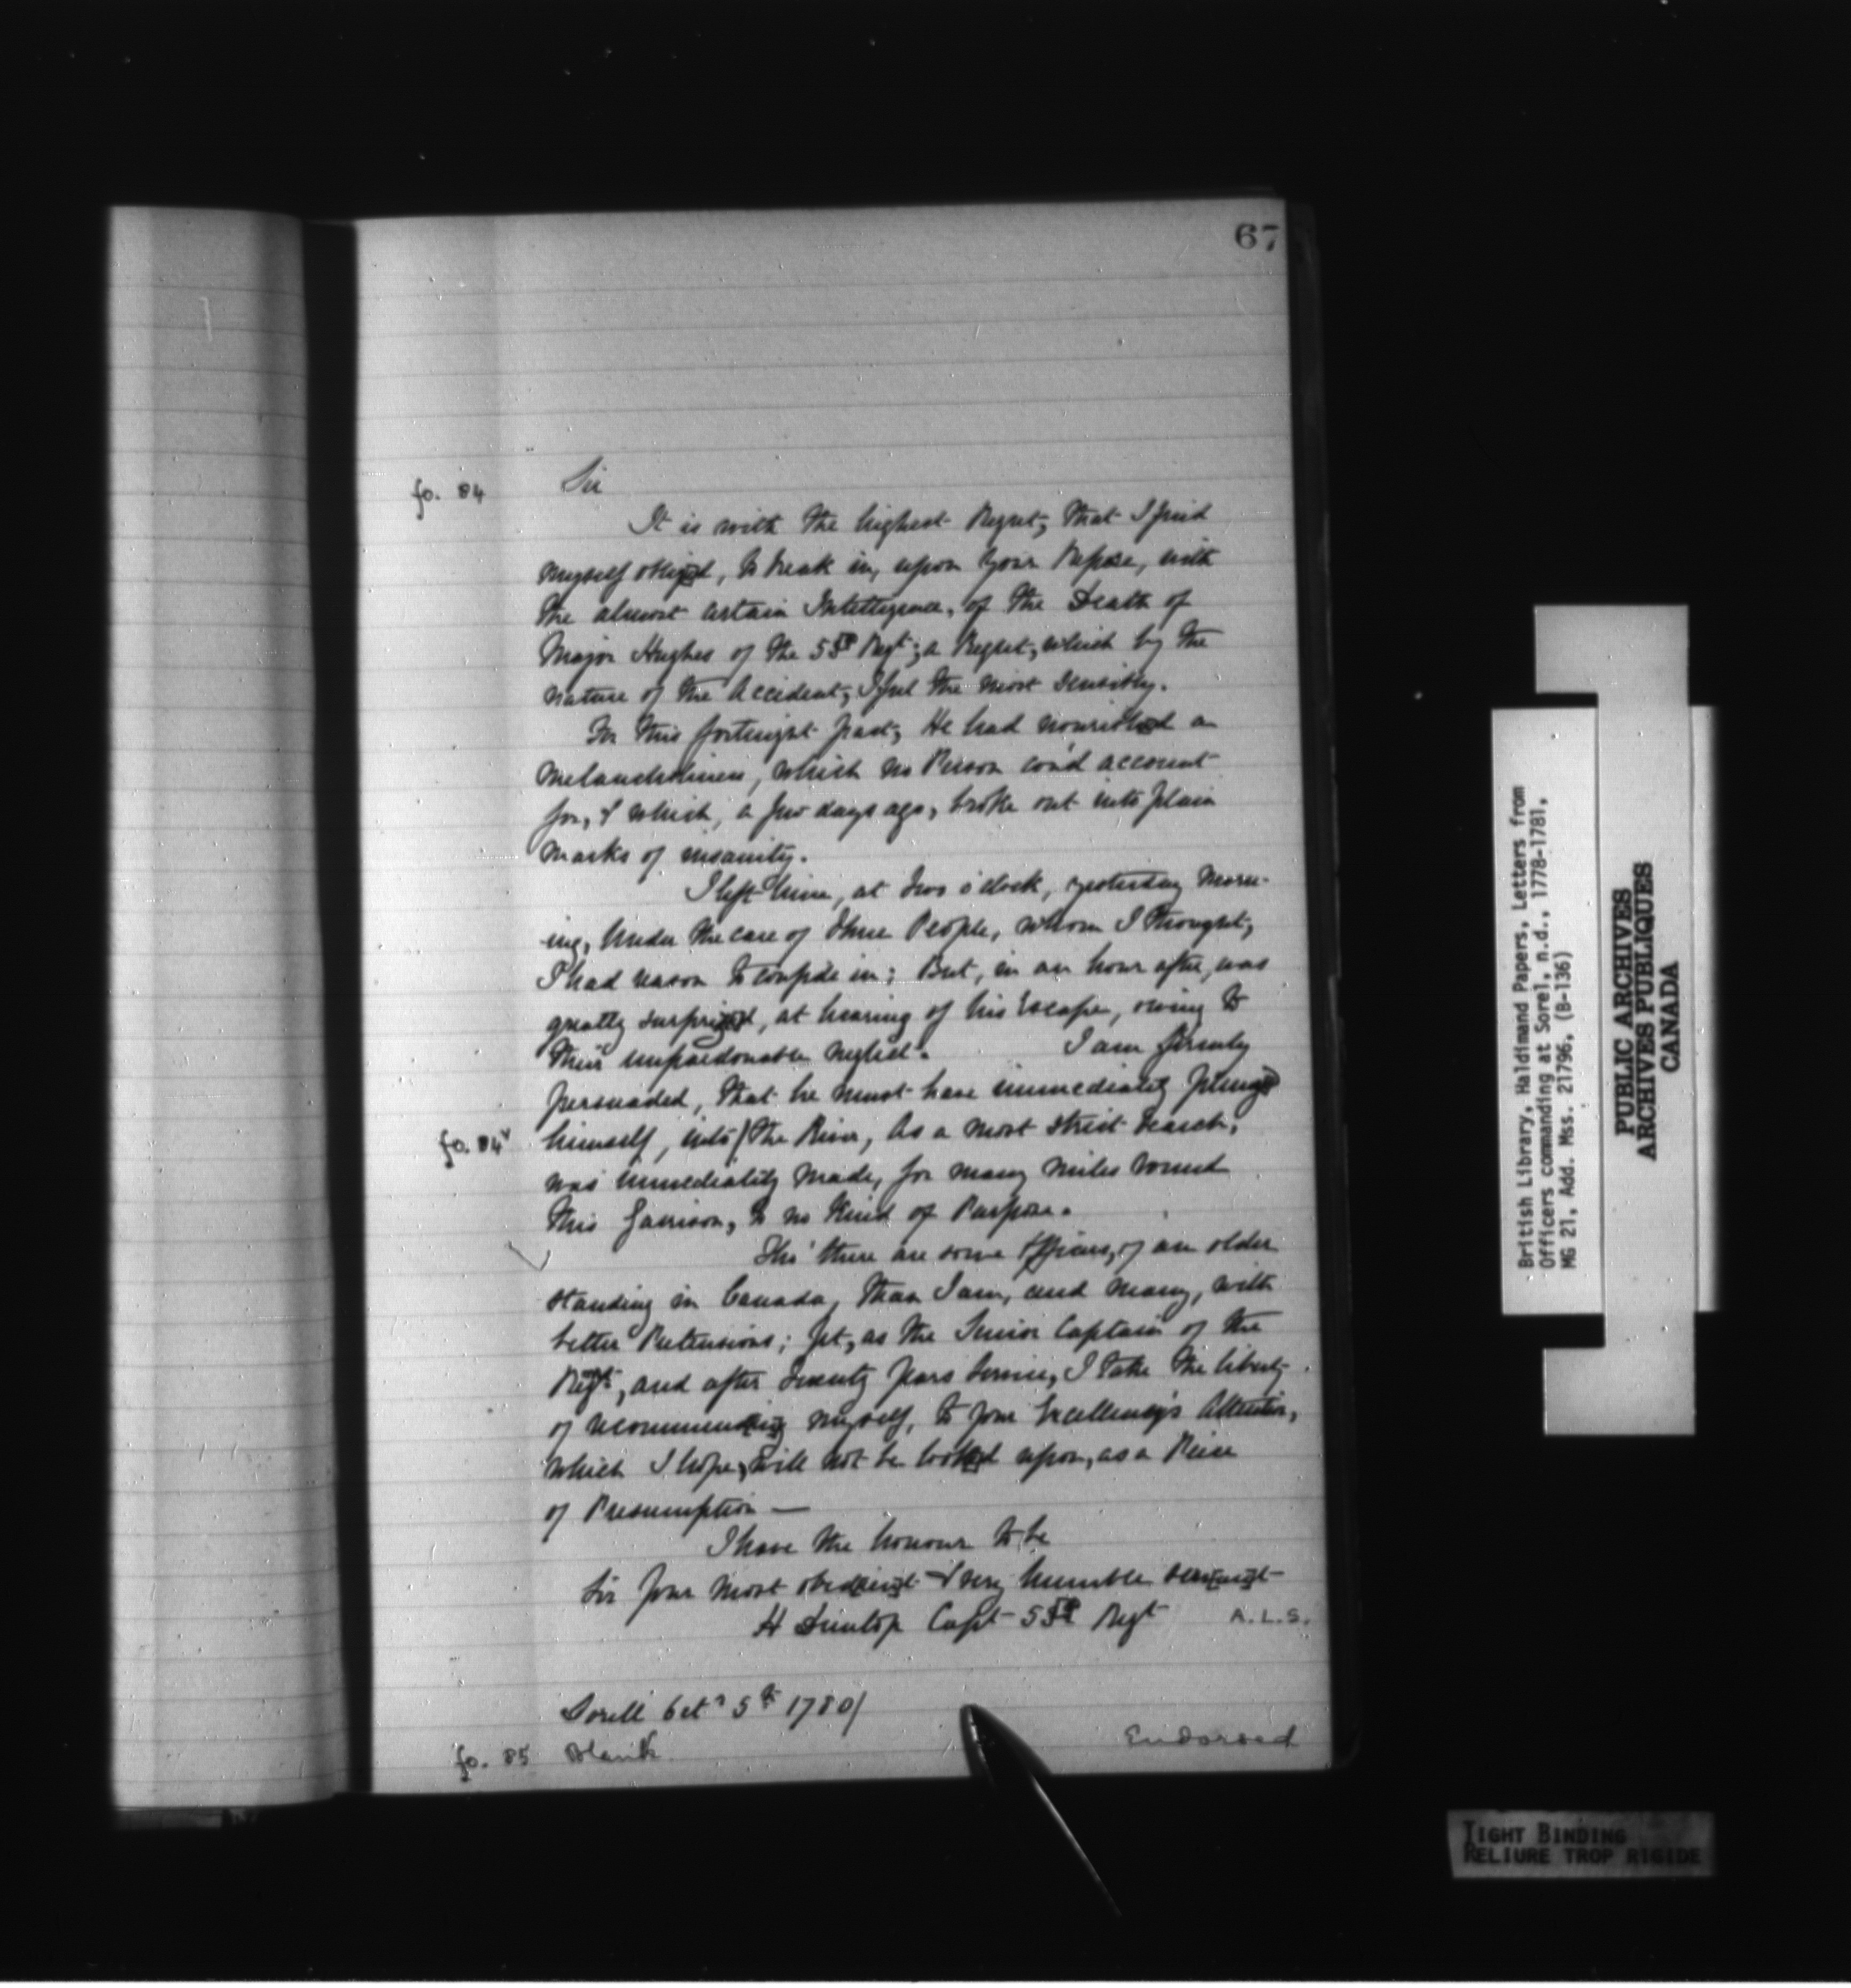 67
fo. 84 Sir
It is with the highest Regret, that I find
myself obliged, to break in, upon your Repose, with
the almost certain Intelligence, of the Death of
Major Hughes of the 53d Regt; a Regret, which by the
nature of the Accident, I feel the most sensibly.
For this fortnight past, He had nourished a
melancholiness, which no Person cou'd account
for, & which, a few days ago, broke out into plain
marks of insanity.
I left him, at Two o'clock, yesterday Morn-
ing, Under the care of Three People, whom I thought,
I had reason to confide in; But, in an hour after, was
greatly surprized, at hearing of his Escape, owing to
their unpardonable neglect. I am firmly
persuaded, that he must have immediately plunged
fo. 84v himself, into/ the River, As a most strict Search,
was immediately made, for many miles round
this Garrison, to no Kind of Purpose.
Tho' there are some Officers, of an older
standing in Canada, than I am, and many, with
better Pretensions; yet, as the Senior Captain of the
Regt, and after Twenty years Service, I take the liberty
of recommending myself, to your Excellency's Attention,
which I hope, will not be looked upon, as a Piece
of Presumption —
I have the honour to be
Sir your most obedient & very humble servant
H Dunlop Capt 53d Regt A.L.S.
Sorell Octr 5th 1780/
Endorsed
fo. 85 Blank
British Library, Haldimand Papers, Letters from
Officers commanding at Sorel, n.d., 1778-1781,
MG 21, Add. Mss. 21796, (B-136)
PUBLIC ARCHIVES
ARCHIVES PUBLIQUES
CANADA
TIGHT BINDING
RELIURE TROP RIGIDE